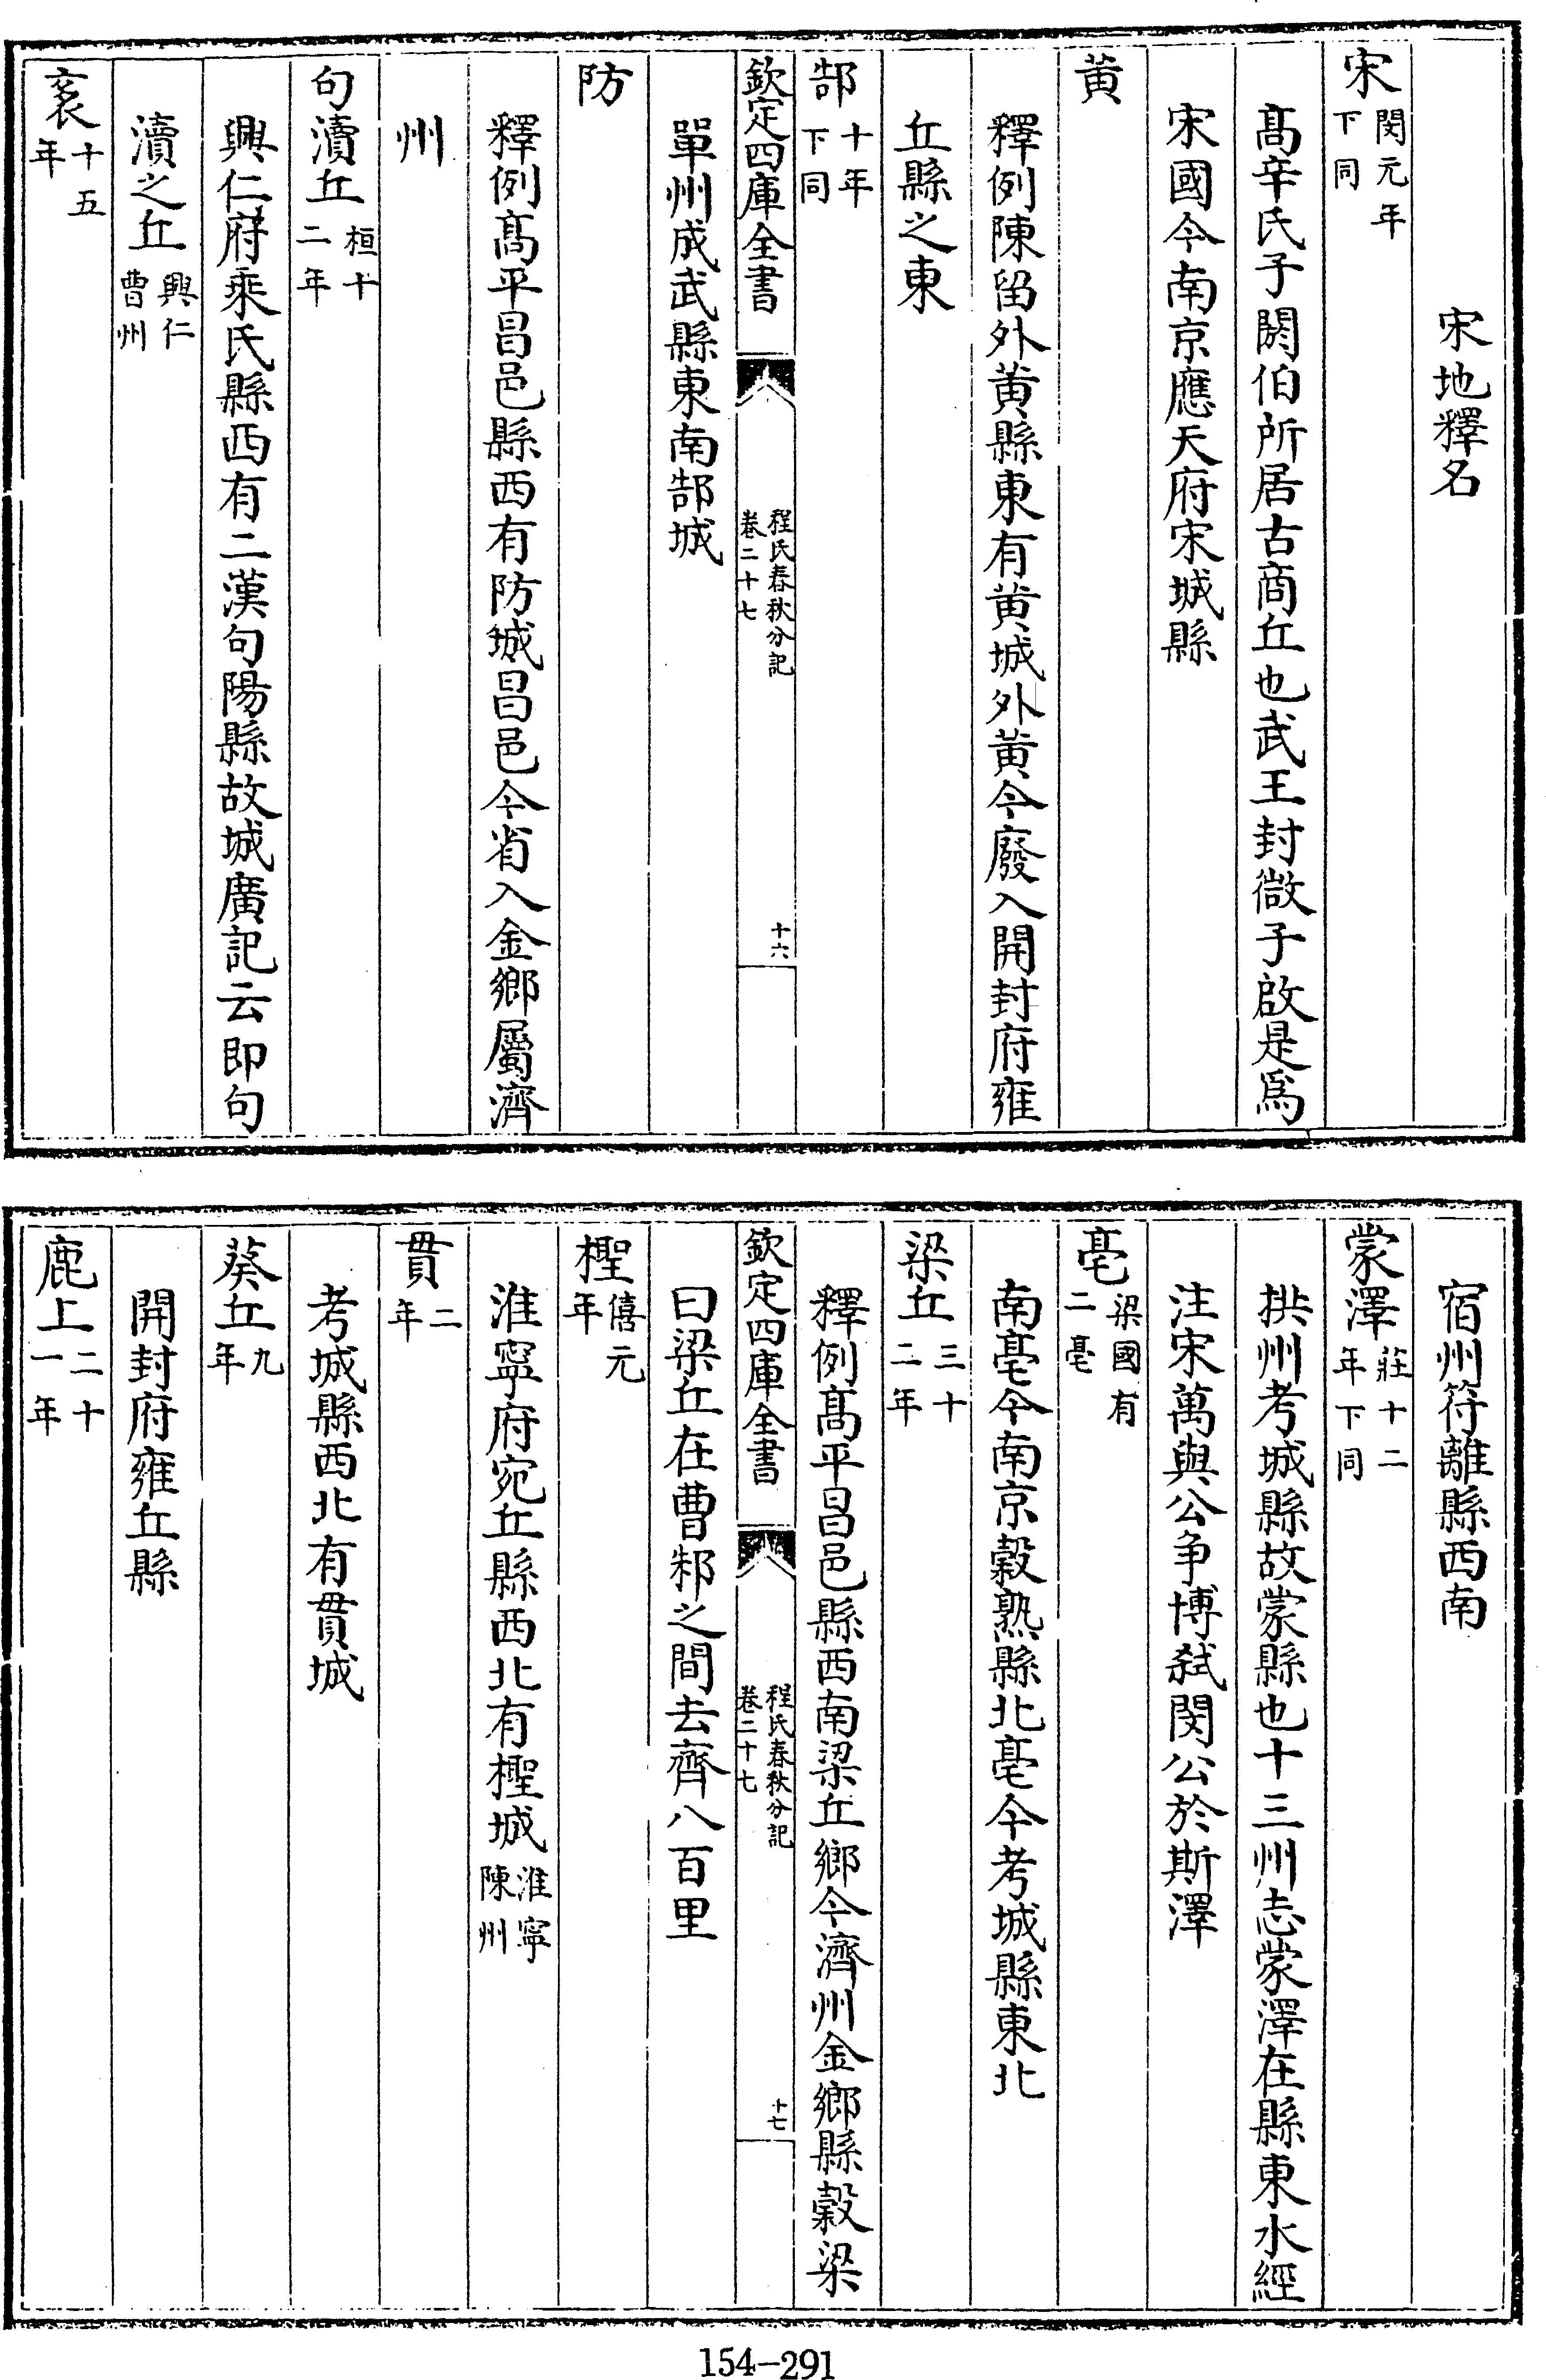 宋地釋名
宋閔元年下同
髙辛氏子閼伯所居古商丘也武王封微子啟是爲
宋國今南京應天府宋城縣
黃
釋例陳留外黃縣東有黃城外黃今廢入開封府雍
丘縣之東
郜十年下同
欽定四庫全書
程氏春秋分記
卷二十七
十六
單州成武縣東南郜城
防
釋例髙平昌邑縣西有防城昌邑今省入金鄉屬濟
州
句瀆丘桓十二年
興仁府乘氏縣西有二漢句陽縣故城廣記云即句
瀆之丘興仁曹州
袤十五年
宿州符離縣西南
蒙澤莊十二年下同
拱州考城縣故蒙縣也十三州志蒙澤在縣東水經
注宋萬與公爭博弑閔公於斯澤
亳梁國有二亳
南亳今南京穀熟縣北亳今考城縣東北
梁丘三十二年
釋例髙平昌邑縣西南梁丘鄉今濟州金鄉縣穀梁
欽定四庫全書
程氏春秋分記
卷二十七
十七
曰梁丘在曹邾之間去齊八百里
檉僖元年
淮寧府宛丘縣西北有檉城淮寧陳州
貫二年
考城縣西北有貫城
葵丘九年
開封府雍丘縣
鹿上二十一年
154-291